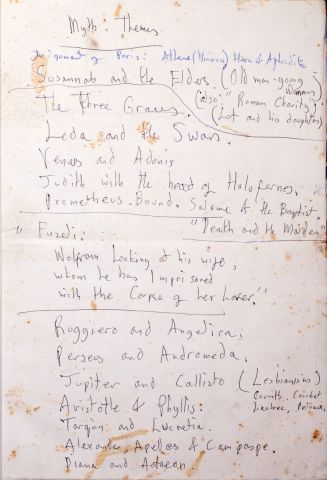 Myth. Themes
Judgement of Paris: Athena (Minerva) Hera & Aphrodite
Susannah and the Elders (Old man-young woman)
(also "Roman Charity")
The Three Graces. (Lot and his daughters)
Leda and the Swan.
Venus and Adonis
Judith with the head of Holofernes.
Prometheus. Bound. Salome & the Baptist.
"Death and the Maiden"
"Fuseli:
Wolfram Looking at his wife,
whom he has Imprisoned
with the Corpse of her Lover."
Ruggiero and Angelica;
Perseus and Andromeda.
Jupiter and Callisto (Lesbianism)
Courbet
Lautrec,
Aristotle & Phyllis.
Tarquin and Lucretia.
Alexander, Apelles & Campaspe.
Diana and Actaeon